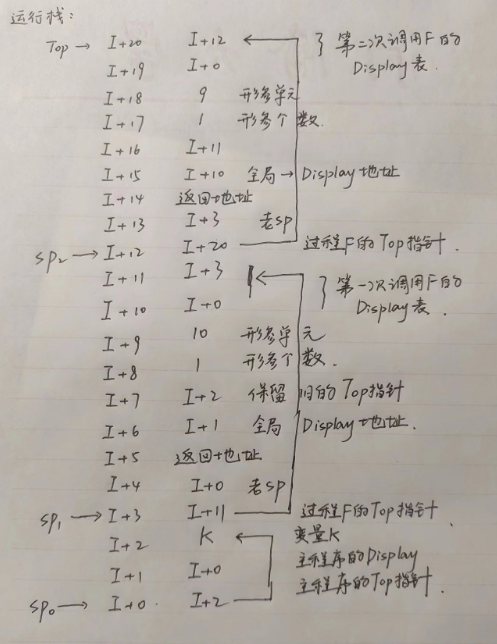 运行栈:
Top → I+20 I+12 } 第二次调用F的
I+19 I+0 Display表.
I+18 9 形参单元
I+17 1 形参个数.
I+16 I+11
I+15 I+10 全局→Display地址
I+14 返回地址
I+13 I+3 老sp
SP2 → I+12 I+20 过程F的Top指针.
I+11 I+3 } 第一次调用F的
I+10 I+0 Display表.
I+9 10 形参单元
I+8 1 形参个数.
I+7 I+2 保留旧的Top指针
I+6 I+1 全局Display地址.
I+5 返回地址
I+4 I+0 老sp
SP1 → I+3 I+11 过程F的Top指针.
I+2 K 变量K
I+1 I+0 主程序的Display
SP0 → I+0 I+2 主程序的Top指针.